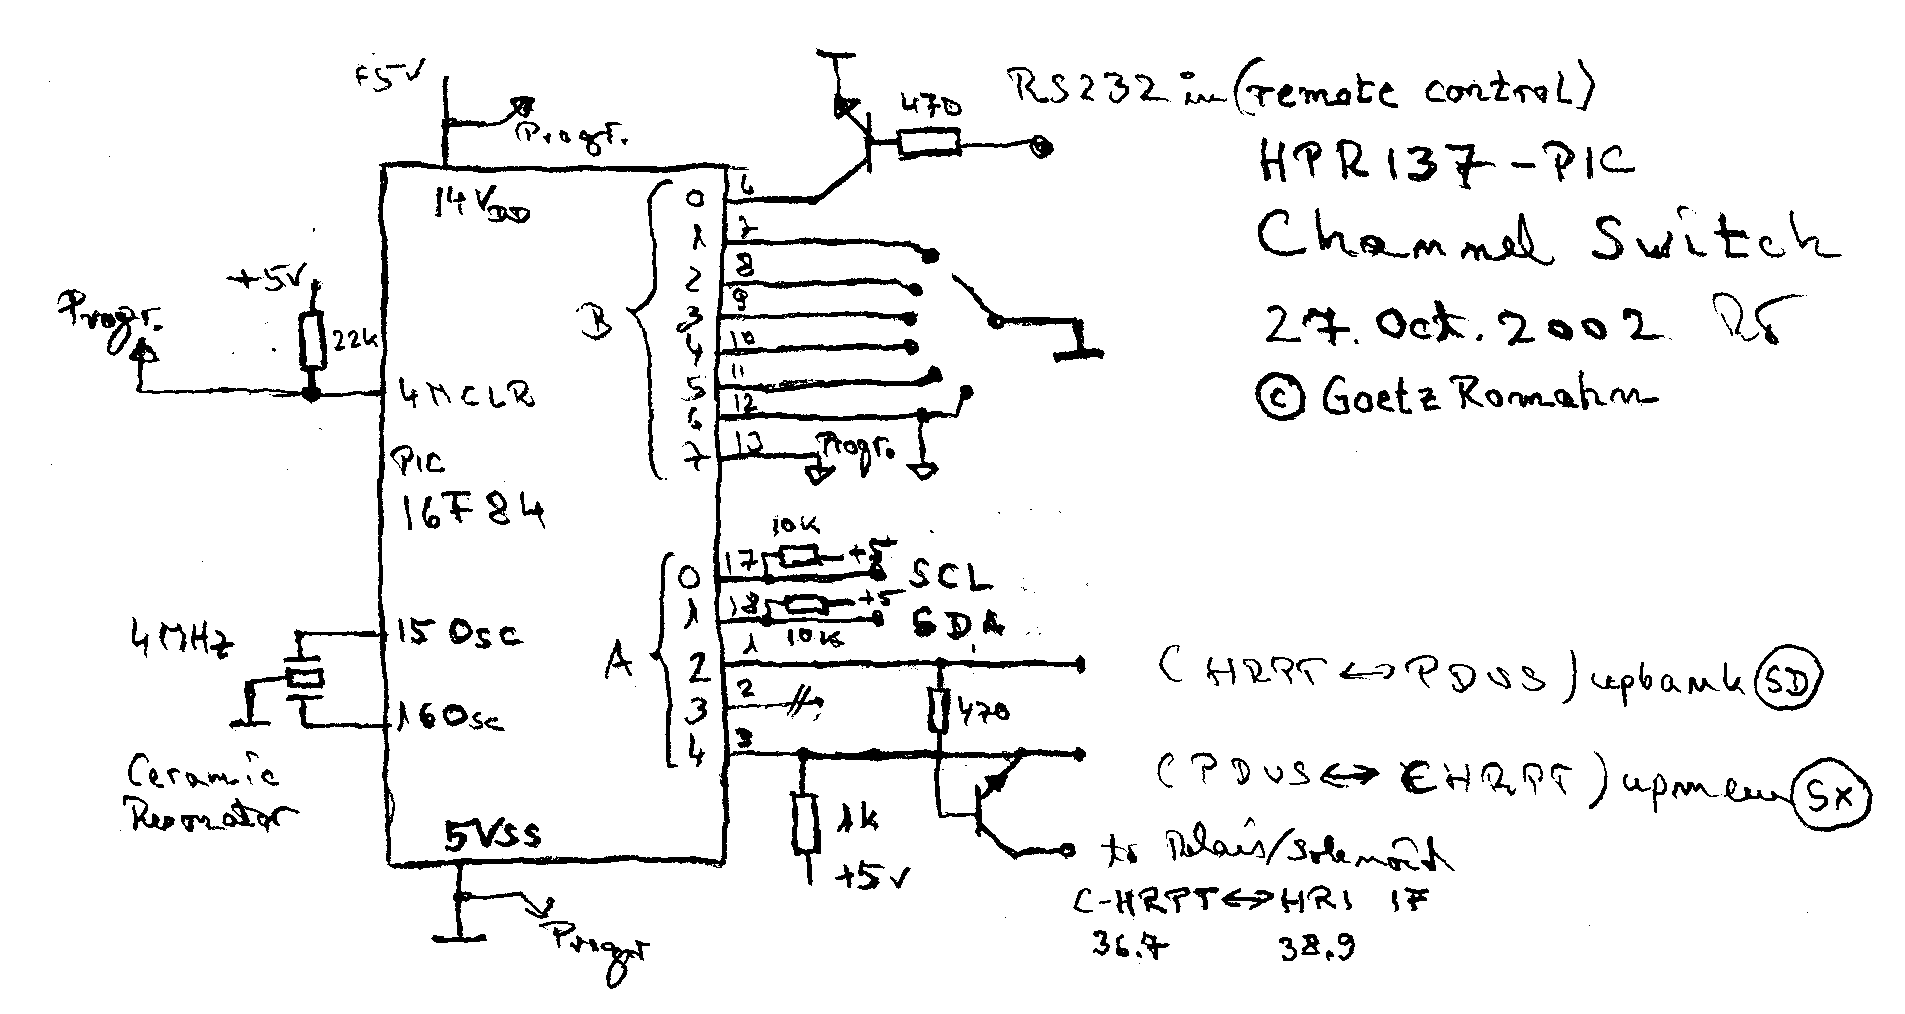 RS232 in (remote control)
HPR137-PIC
Channel Switch
27. Oct. 2002
© Goetz Romahn
+5V
Progr.
14 VDD
470
+5V
22K
Progr.
4 MCLR
PIC
16F84
4MHz
15 Osc
16 Osc
Ceramic
Resonator
5 VSS
Progr
B
0 6
1 7
2 8
3 9
4 10
5 11
6 12
7 13
Progr.
A
0 17 10K +5 SCL
1 18 10K +5 SDA
2 1
3 2
4 3
470
1K
+5V
(HRPT ↔ PDUS) upbank SD
(PDUS ↔ CHRPT) upmem SX
to Relais/Solenoid
C-HRPT ↔ HRI IF
36.7 38.9